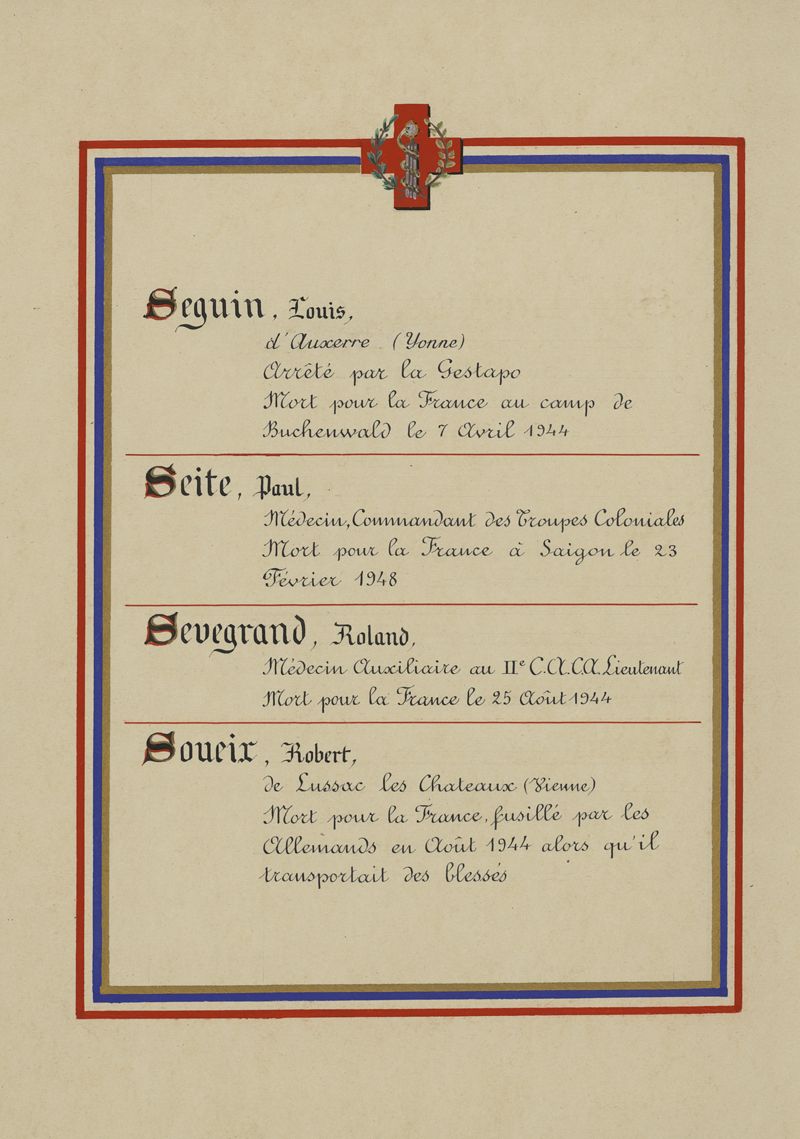 Seguin, Louis,
d'Auxerre (Yonne)
Arrêté par la Gestapo
Mort pour la France au camp de
Buchenwald le 7 Avril 1944
Seite, Paul,
Médecin, Commandant des Troupes Coloniales
Mort pour la France à Saigon le 23
Février 1948
Sevegrand, Roland,
Médecin Auxiliaire au IIe C.A.C.A. Lieutenant
Mort pour la France le 25 Août 1944
Soueix, Robert,
de Lussac les Chateaux (Vienne)
Mort pour la France, fusillé par les
Allemands en Août 1944 alors qu'il
transportait des blessés